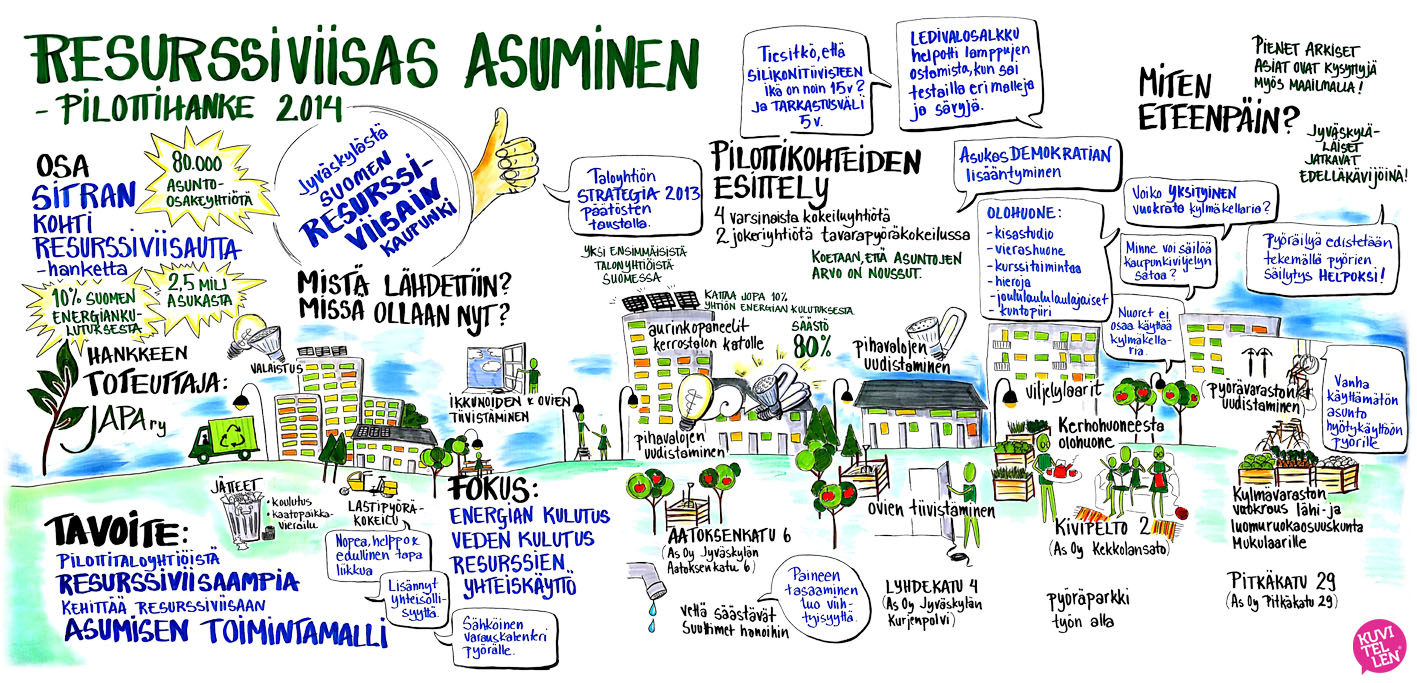 RESURSSIVIISAS ASUMINEN
- PILOTTIHANKE 2014
OSA
SITRAN
KOHTI
RESURSSIVIISAUTTA
-hanketta
80.000
ASUNTO-
OSAKEYHTIÖTÄ
10% SUOMEN
ENERGIANKU-
LUTUKSESTA
2,5 MILJ
ASUKASTA
Jyväskylästä
SUOMEN
RESURSSI-
VIISAIN
KAUPUNKI
MISTÄ LÄHDETTIIN?
MISSÄ OLLAAN NYT?
HANKKEEN
TOTEUTTAJA:
JAPA ry
VALAISTUS
IKKUNOIDEN & OVIEN
TIIVISTÄMINEN
JÄTTEET
• KOULUTUS
• KAATOPAIKKA-
VIERAILU
LASTIPYÖRÄ-
KOKEILU
Nopea, helppo &
edullinen tapa
liikkua
Lisännyt
yhteisölli-
syyttä.
Sähköinen
varauskalenteri
pyörälle.
TAVOITE:
PILOTTITALOYHTIÖISTÄ
RESURSSIVIISAAMPIA
KEHITTÄÄ RESURSSIVIISAAN
ASUMISEN TOIMINTAMALLI
FOKUS:
ENERGIAN KULUTUS
VEDEN KULUTUS
RESURSSIEN
YHTEISKÄYTTÖ
Tiesitkö, että
SILIKONITIIVISTEEN
ikä on noin 15v?
Ja TARKASTUSVÄLI
5 v.
LEDIVALOSALKKU
helpotti lamppujen
ostamista, kun sai
testailla eri malleja
ja sävyjä.
PILOTTIKOHTEIDEN
ESITTELY
4 varsinaista kokeiluyhtiötä
2 jokeriyhtiötä tavarapyöräkokeilussa
KOETAAN, ETTÄ ASUNTOJEN
ARVO ON NOUSSUT.
Taloyhtiön
STRATEGIA 2013
päätösten
taustalla.
YKSI ENSIMMÄISISTÄ
TALONYHTIÖISTÄ
SUOMESSA
KATTAA JOPA 10%
YHTIÖN ENERGIAN KULUTUKSESTA
aurinkopaneelit
kerrostalon katolle
SÄÄSTÖ
80%
pihavalojen
uudistaminen
AATOKSENKATU 6
(As Oy Jyväskylän
Aatoksenkatu 6)
Vettä säästävät
suuttimet hanoihin
Paineen
tasaaminen
tuo viih-
tyisyyttä.
pihavalojen
uudistaminen
ovien tiivistäminen
LYHDEKATU 4
(As Oy Jyväskylän
Kurjenpolvi)
Asukas DEMOKRATIAN
lisääntyminen
OLOHUONE:
- kisastudio
- vierashuone
- kurssitoimintaa
- hieroja
- joululaululaulajaiset
- kuntopiiri
viljelylaarit
Kerhohuoneesta
olohuone
KIVIPELTO 2
(As Oy Kekkolansato)
pyöräparkki
työn alla
MITEN
ETEENPÄIN?
PIENET ARKISET
ASIAT OVAT KYSYTTYJÄ
MYÖS MAAILMALLA!
JYVÄSKYLÄ-
LÄISET
JATKAVAT
EDELLÄKÄVIJÖINÄ!
Voiko YKSITYINEN
vuokrata kylmäkellaria?
Minne voi säilöä
kaupunkiviljelyn
satoa?
Nuoret ei
osaa käyttää
kylmäkella-
ria.
Pyöräilyä edistetään
tekemällä pyörien
säilytys HELPOKSI!
pyörävaraston
uudistaminen
Vanha
käyttämätön
asunto
hyötykäyttöön
pyörille
Kylmävaraston
vuokraus lähi- ja
luomuruokaosuuskunta
Mukulaarille
PITKÄKATU 29
(As Oy Pitkäkatu 29)
KUVI
TEL
LEN